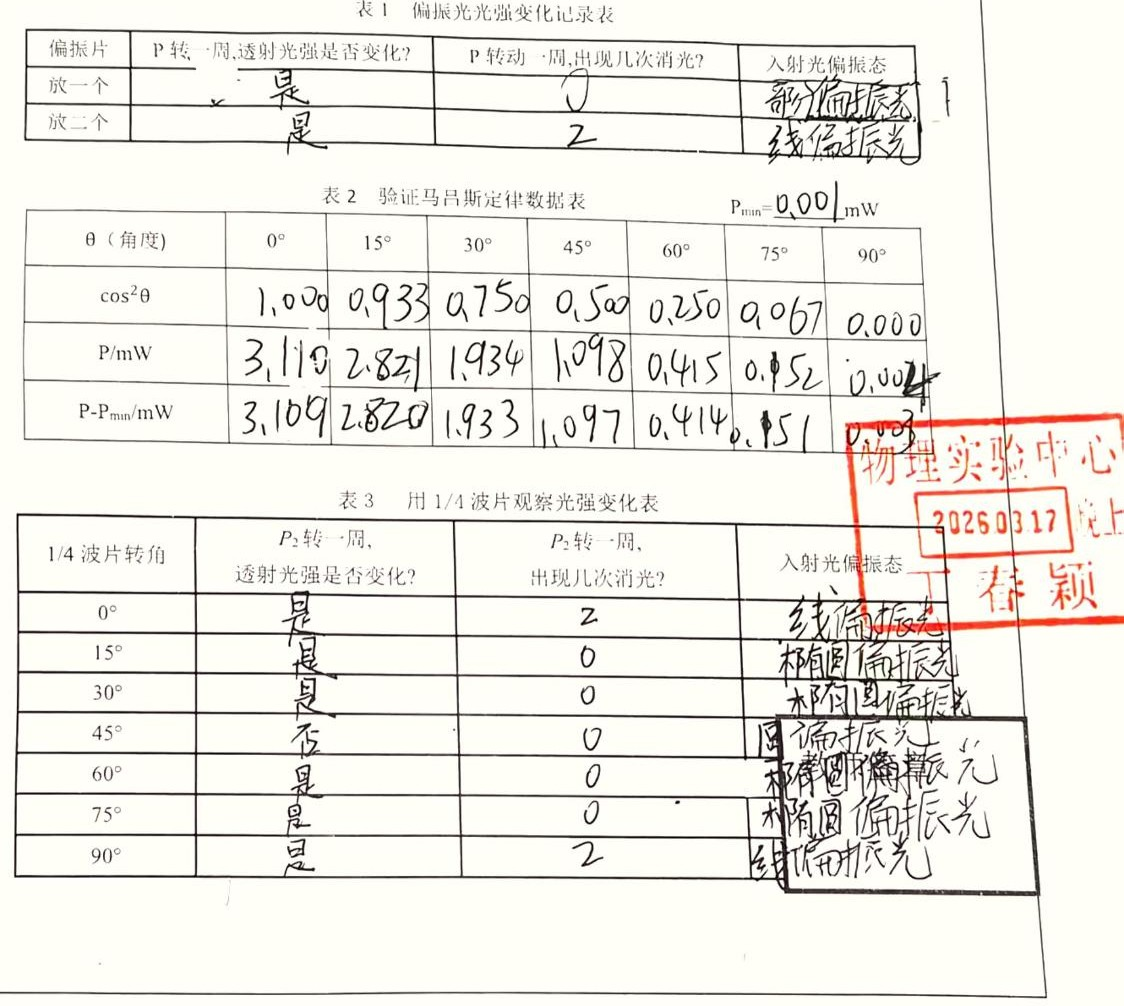 表 1 偏振光光强变化记录表
偏振片 P 转一周,透射光强是否变化? P 转动一周,出现几次消光? 入射光偏振态
放一个 是 0 部分偏振光
放二个 是 2 线偏振光
表 2 验证马吕斯定律数据表 Pmin=0.001mW
θ（角度) 0° 15° 30° 45° 60° 75° 90°
cos²θ 1.000 0.933 0.750 0.500 0.250 0.067 0.000
P/mW 3.110 2.821 1.934 1.098 0.415 0.152 0.004
P-Pmin/mW 3.109 2.820 1.933 1.097 0.414 0.151 0.003
物理实验中心
2026.03.17 晚上
春颖
表 3 用 1/4 波片观察光强变化表
1/4 波片转角 P₂转一周,透射光强是否变化? P₂转一周,出现几次消光? 入射光偏振态
0° 是 2 线偏振光
15° 是 0 椭圆偏振光
30° 是 0 椭圆偏振光
45° 否 0 圆偏振光
60° 是 0 椭圆偏振光
75° 是 0 椭圆偏振光
90° 是 2 线偏振光